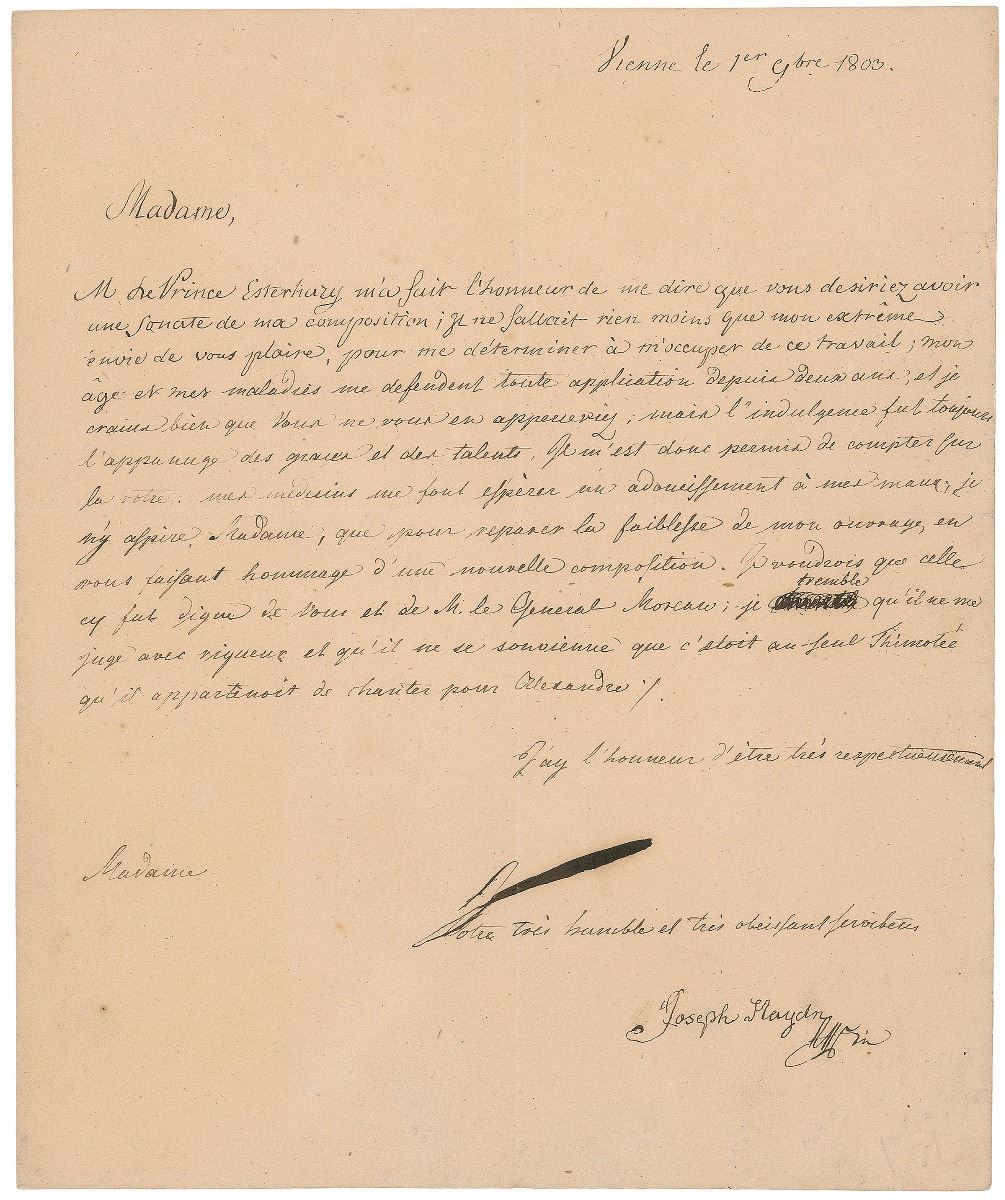 Vienne le 1er 9bre 1803.
Madame,
M. Le Prince Esterhazy m'a fait l'honneur de me dire que vous desiriez avoir
une sonate de ma composition ; Il ne fallait rien moins que mon extrême
envie de vous plaire, pour me déterminer à m'occuper de ce travail ; mon
âge et mes maladies me defendent toute application depuis deux ans, et je
crains bien que Vous ne vous en apperceviez ; mais l'indulgence fut toujours
l'appanage des graces et des talents, Il m'est donc permis de compter sur
la votre. mes médecins me font espérer un adoucissement à mes maux, je
n'y aspire, Madame, que pour reparer la faiblesse de mon ouvrage, en
vous faisant hommage d'une nouvelle composition. Je voudrois que celle
cy fut digne de Vous et de M. le Général Moreau ; je tremble qu'il ne me
juge avec rigueur et qu'il ne se souvienne que c'étoit au seul Thimotée
qu'il appartenoit de chanter pour Alexandre ./.
J'ay l'honneur d'être très respectueusement
Madame
Votre très humble et très obeissant serviteur
Joseph Haydn